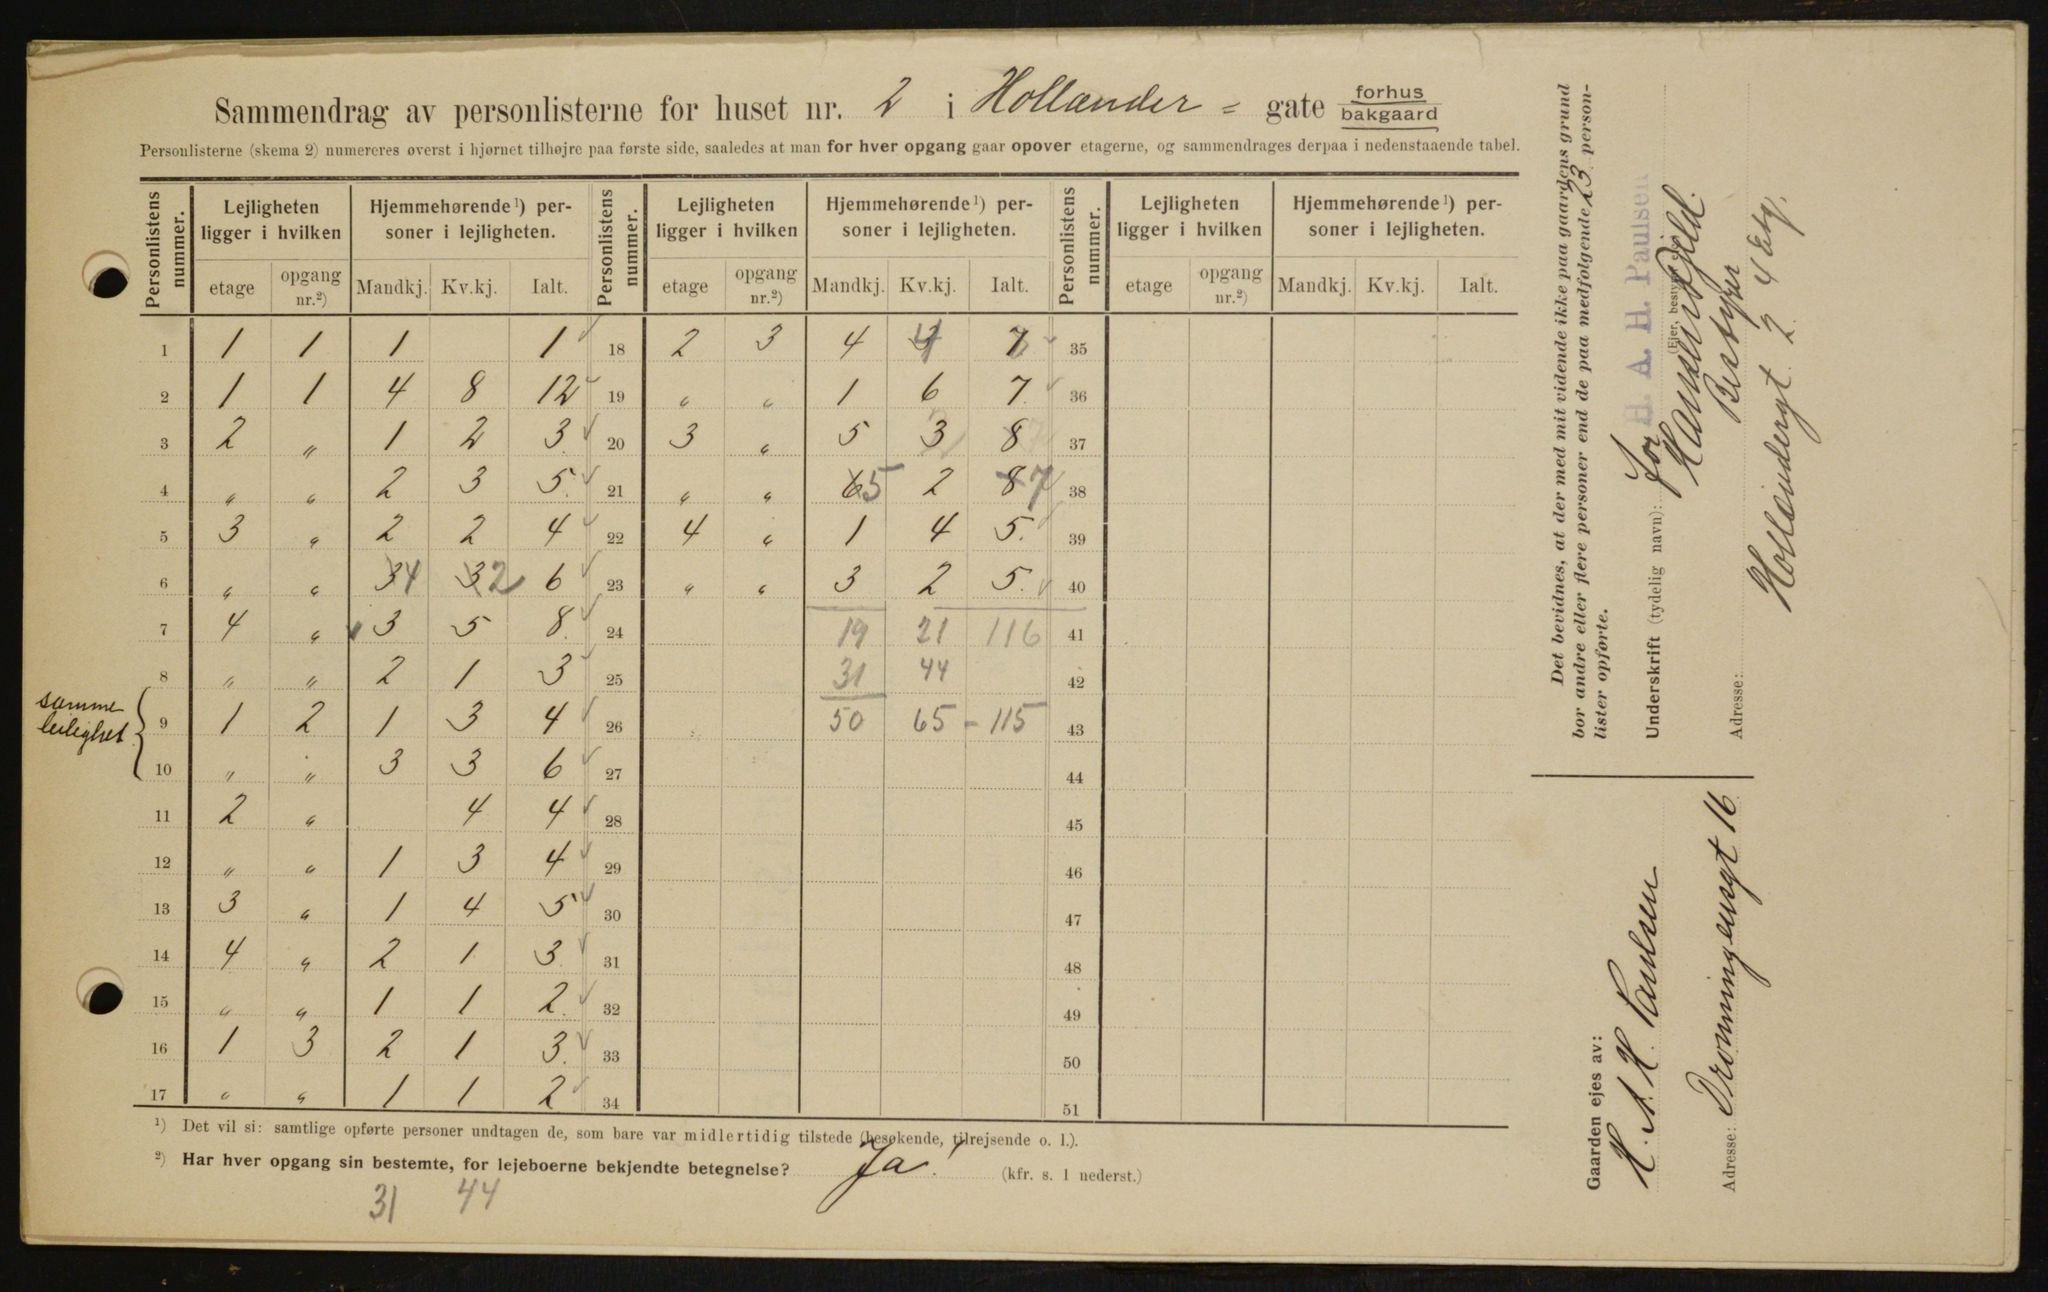 Sammendrag av personlisterne for huset nr. 2 i Hollænder = gate forhus bakgaard
Personlisterne (skema 2) numereres øverst i hjørnet tilhøjre paa første side, saaledes at man for hver opgang gaar opover etagerne, og sammendrages derpaa i nedenstaaende tabel.
Personlistens nummer. Lejligheten ligger i hvilken Hjemmehørende¹) personer i lejligheten. Personlistens nummer. Lejligheten ligger i hvilken Hjemmehørende¹) personer i lejligheten. Personlistens nummer. Lejligheten ligger i hvilken Hjemmehørende¹) personer i lejligheten.
etage opgang nr.²) Mandkj. Kv.kj. Ialt. etage opgang nr.²) Mandkj. Kv.kj. Ialt. etage opgang nr.²) Mandkj. Kv.kj. Ialt.
1 1 1 1 1 18 2 3 4 3 7 35
2 1 1 4 8 12 19 " " 1 6 7 36
3 2 " 1 2 3 20 3 " 5 3 8 37
4 " " 2 3 5 21 " " 6 5 2 8 7 38
5 3 " 2 2 4 22 4 " 1 4 5 39
6 " " 3 4 3 2 6 23 " " 3 2 5 40
7 4 " 3 5 8 24 19 21 116 41
8 " " 2 1 3 25 31 44 42
samme leilighet
9 1 2 1 3 4 26 50 65 - 115 43
10 " " 3 3 6 27 44
11 2 " 4 4 28 45
12 " " 1 3 4 29 46
13 3 " 1 4 5 30 47
14 4 " 2 1 3 31 48
15 " " 1 1 2 32 49
16 1 3 2 1 3 33 50
17 " " 1 1 2 34 51
¹) Det vil si: samtlige opførte personer undtagen de, som bare var midlertidig tilstede (besøkende, tilrejsende o. l.).
²) Har hver opgang sin bestemte, for lejeboerne bekjendte betegnelse? Ja! (kfr. s. 1 nederst.)
31 44
Det bevidnes, at der med mit vidende ikke paa gaardens grund
bor andre eller flere personer end de paa medfølgende 23 person-
lister opførte.
H. A. H. Paulsen
Underskrift (tydelig navn): for
(Ejer, bestyrer
Bestyrer
Adresse: Hollændergt 2 4 Etg.
Gaarden ejes av:
H. A. H. Paulsen
Adresse: Dronningensgt 16